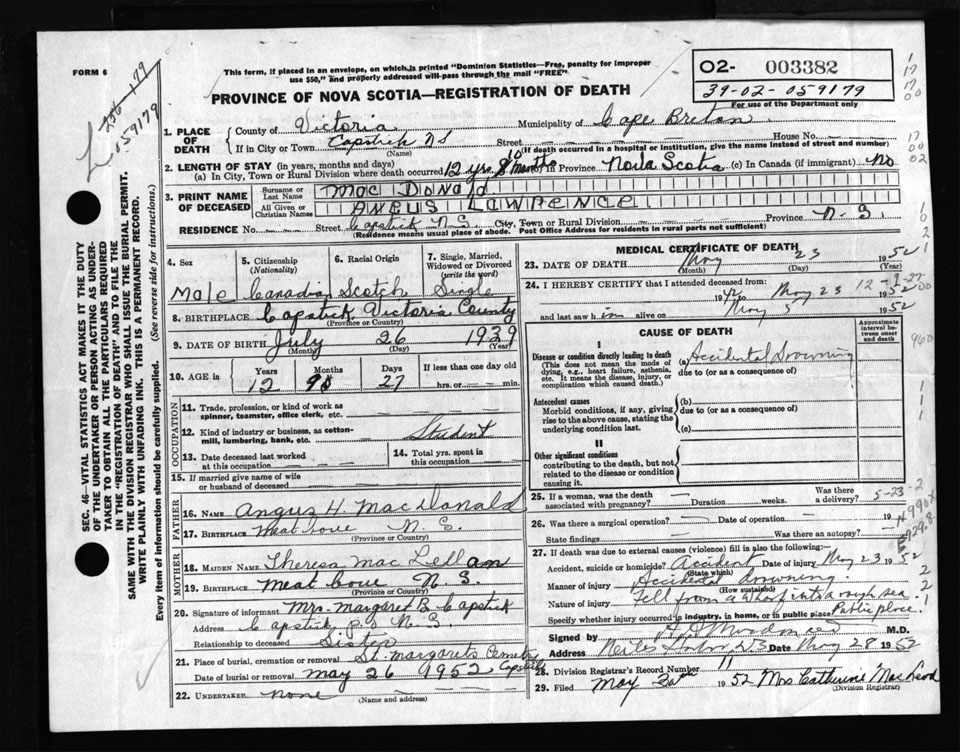 FORM 6
This form, if placed in an envelope, on which is printed "Dominion Statistics—Free, penalty for improper
use $50," and properly addressed will pass through the mail "FREE"
O2- 003382
39-02-059179
For use of the Department only
PROVINCE OF NOVA SCOTIA—REGISTRATION OF DEATH
059179
1. PLACE OF DEATH
County of Victoria Municipality of Cape Breton
If in City or Town Capstick N S Street House No.
(Name) (If death occurred in a hospital or institution, give the name instead of street and number)
2. LENGTH OF STAY (in years, months and days)
(a) In City, Town or Rural Division where death occurred 12 yrs (b) In Province Nova Scotia (c) In Canada (if immigrant) No
3. PRINT NAME OF DECEASED
Surname or Last Name Mac Donald
All Given or Christian Names Angus Lawrence
RESIDENCE No. Street Capstick N.S. City, Town or Rural Division Province N-S.
(Residence means usual place of abode. Post Office Address for residents in rural parts not sufficient)
4. Sex Male
5. Citizenship (Nationality) Canadian
6. Racial Origin Scotch
7. Single, Married, Widowed or Divorced (write the word) Single
8. BIRTHPLACE Capstick Victoria County
(Province or Country)
9. DATE OF BIRTH July 26 1939
(Month) (Day) (Year)
10. AGE in Years Months Days If less than one day old
12 27 hrs. or min.
OCCUPATION
11. Trade, profession, or kind of work as spinner, teamster, office clerk, etc.
12. Kind of industry or business, as cotton-mill, lumbering, bank, etc. Student
13. Date deceased last worked at this occupation
14. Total yrs. spent in this occupation
15. If married give name of wife or husband of deceased
FATHER
16. NAME Angus H. Mac Donald
17. BIRTHPLACE Meat Cove N. S.
(Province or Country)
MOTHER
18. MAIDEN NAME Theresa Mac Lellan
19. BIRTHPLACE Meat Cove N. S.
(Province or Country)
20. Signature of informant Mrs. Margaret B. Capstick
Address Capstick P.O N.S.
Relationship to deceased Sister
21. Place of burial, cremation or removal St. Margarets Cemetry Capstick
Date of burial, cremation or removal May 26 1952
22. UNDERTAKER none
MEDICAL CERTIFICATE OF DEATH
23. DATE OF DEATH May 23 1952
(Month) (Day) (Year)
24. I HEREBY CERTIFY that I attended deceased from:
May 23 1952
and last saw him alive on May 5 1952
CAUSE OF DEATH
Approximate interval between onset and death
I
Disease or condition directly leading to death (a) Accidental Drowning
(This does not mean the mode of dying, e.g., heart failure, asthenia, etc. It means the disease, injury, or complication which caused death.)
due to (or as a consequence of)
Antecedent causes
Morbid conditions, if any, giving rise to the above cause, stating the underlying condition last.
(b)
due to (or as a consequence of)
(c)
II
Other significant conditions
contributing to the death, but not related to the disease or condition causing it.
25. If a woman, was the death associated with pregnancy? Duration weeks. Was there a delivery?
5-23-2
26. Was there a surgical operation? Date of operation 19
State findings Was there an autopsy?
27. If death was due to external causes (violence) fill in also the following:—
Accident, suicide or homicide? Accident Date of injury May 23 1952
(State which)
Manner of injury Accidental drowning.
(How sustained)
Nature of injury Fell from a wharf into a rough sea.
Specify whether injury occurred in industry, in home, or in public place Public place.
Signed by M.D.
Address Neils Harbor N.S Date May 28 1952
28. Division Registrar's Record Number 11
29. Filed May 30th 1952 Mrs Catherine MacLeod
(Division Registrar)
SEC. 46—VITAL STATISTICS ACT MAKES IT THE DUTY
OF THE UNDERTAKER OR PERSON ACTING AS UNDER-
TAKER TO OBTAIN ALL THE PARTICULARS REQUIRED
IN THE "REGISTRATION OF DEATH" AND TO FILE THE
SAME WITH THE DIVISION REGISTRAR WHO SHALL ISSUE THE BURIAL PERMIT.
WRITE PLAINLY WITH UNFADING INK. THIS IS A PERMANENT RECORD.
Every item of information should be carefully supplied. (See reverse side for instructions.)